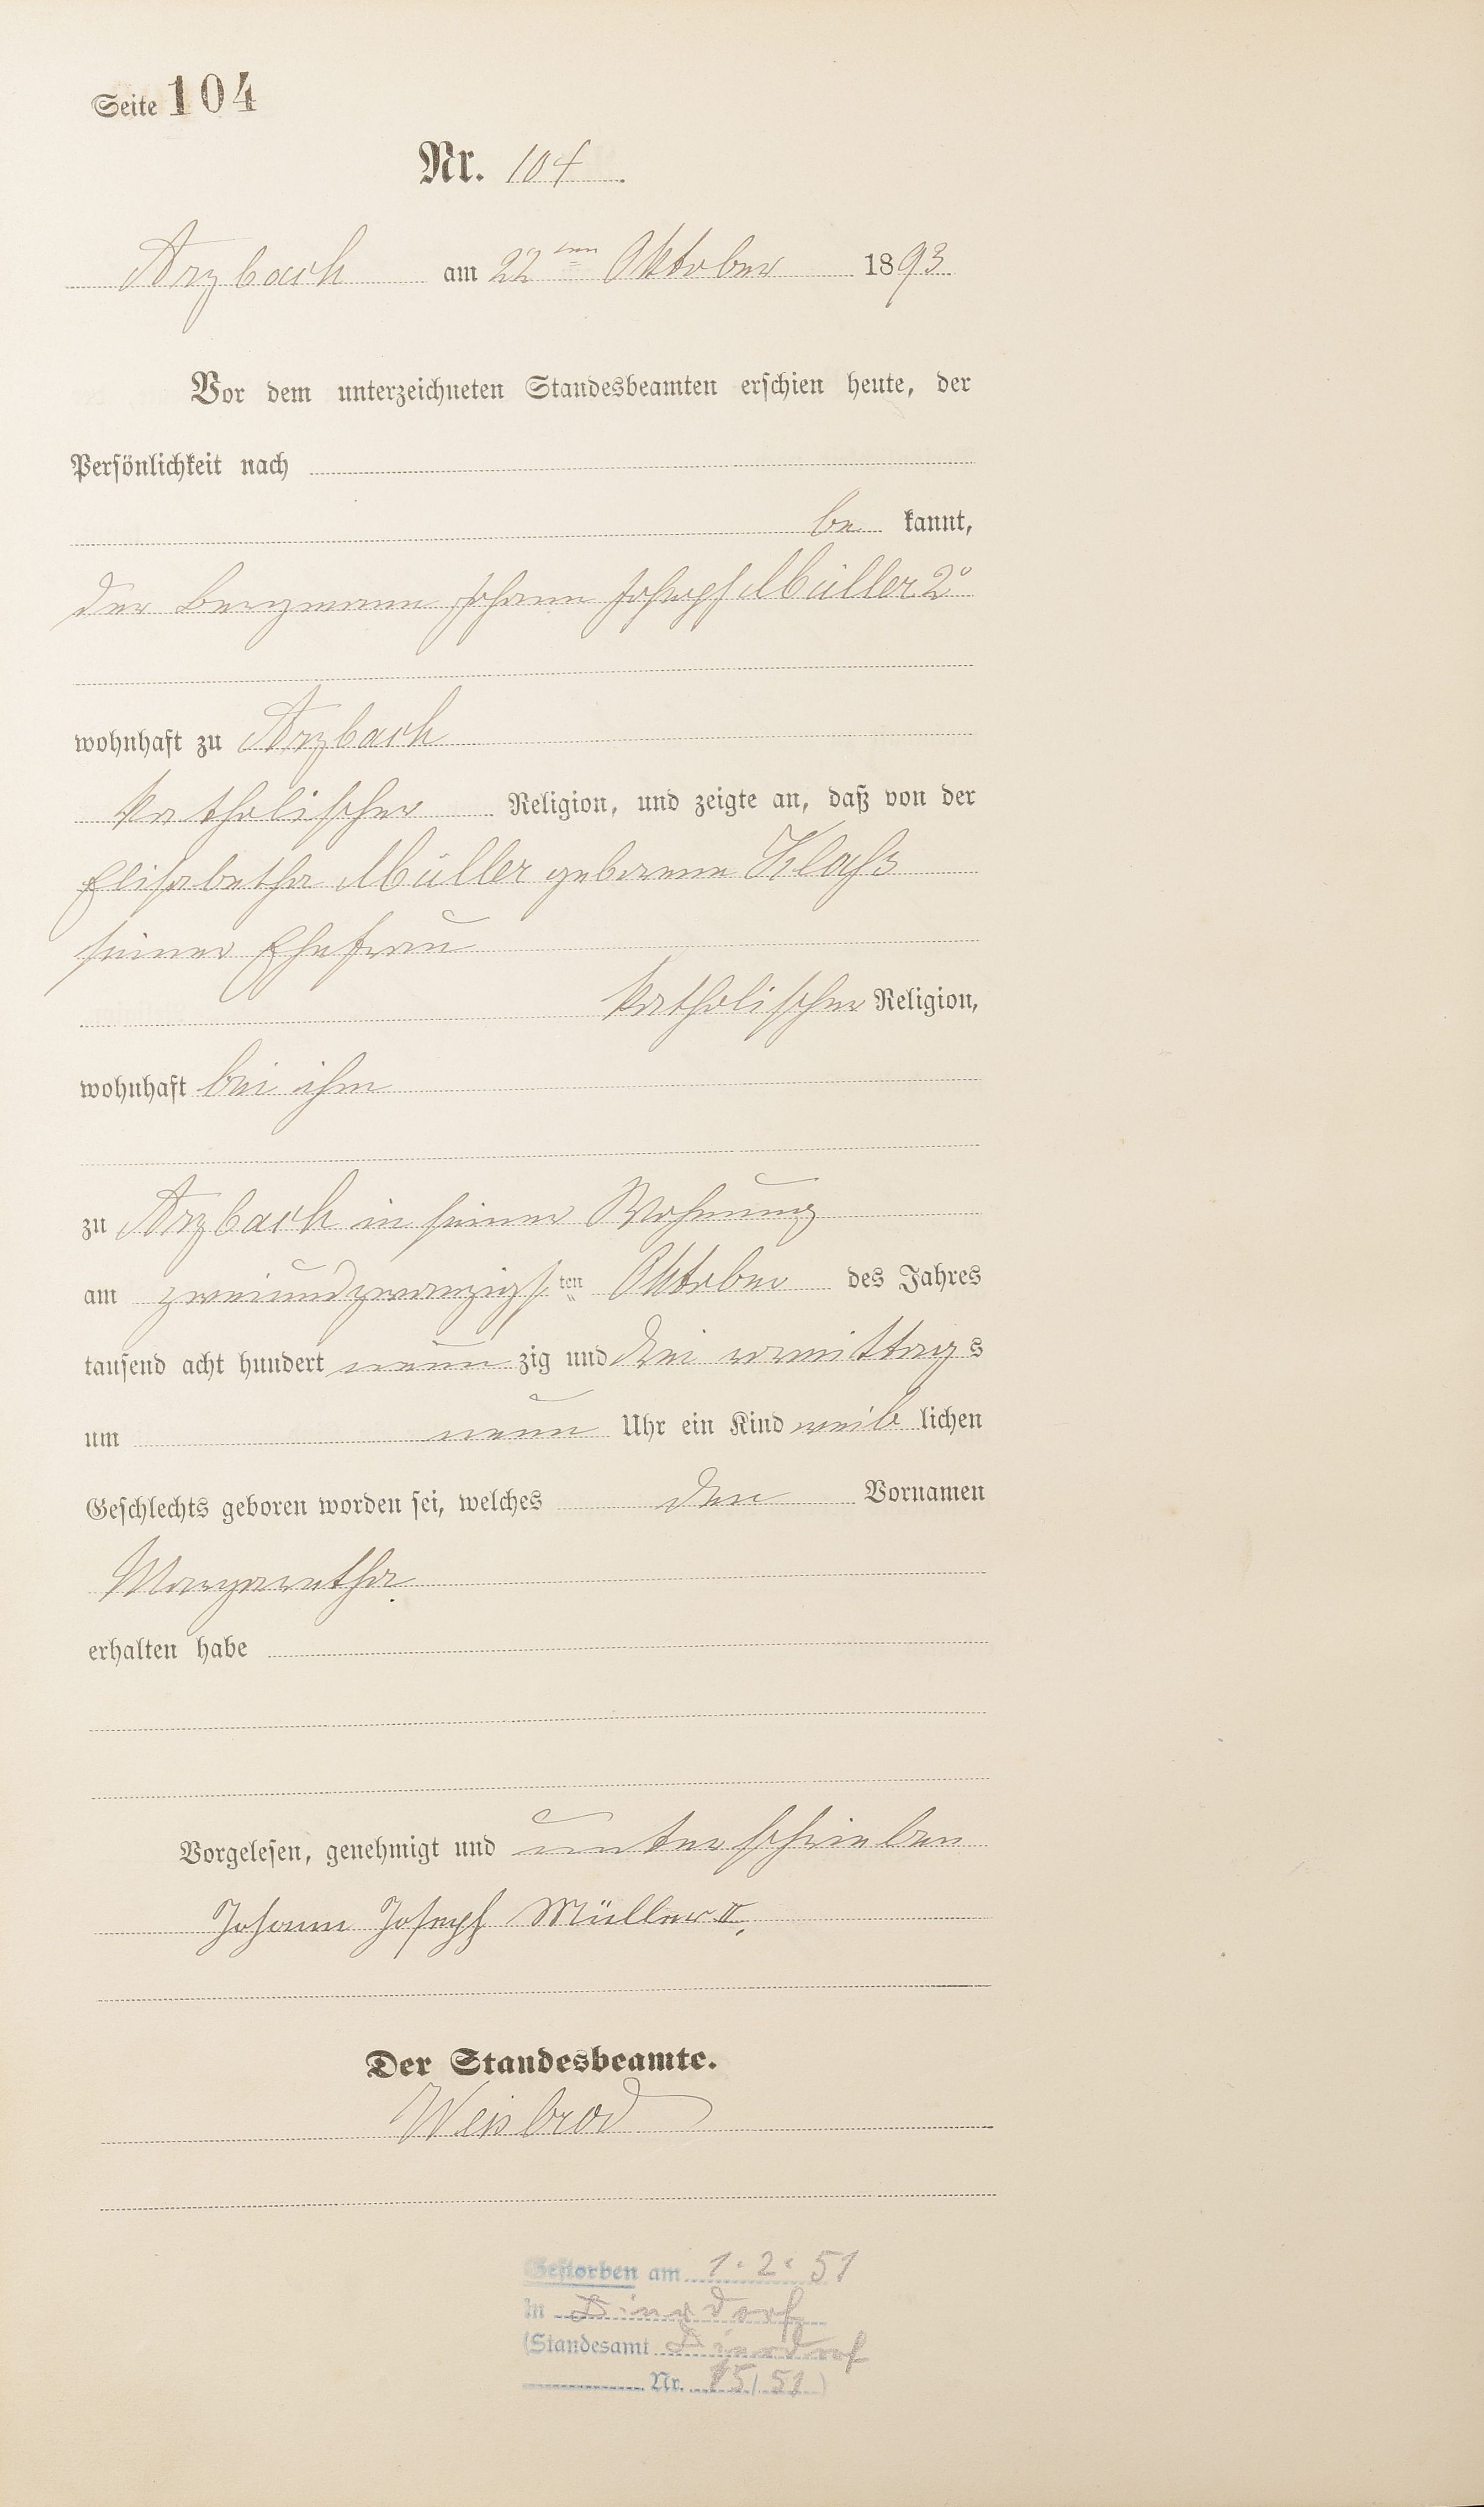 Seite 104
Nr. 104
Arzbach am 22ten Oktober 1893
Vor dem unterzeichneten Standesbeamten erschien heute, der
Persönlichkeit nach
be kannt,
der Bergmann Johann Joseph Müller 2º
wohnhaft zu Arzbach
katholischer Religion, und zeigte an, daß von der
Elisabetha Müller geborene Klaß
seiner Ehefrau
katholischer Religion,
wohnhaft bei ihm
zu Arzbach in seiner Wohnung
am zweiundzwanzigsten Oktober des Jahres
tausend acht hundert neun zig und drei vormittags
um neun Uhr ein Kind weib lichen
Geschlechts geboren worden sei, welches den Vornamen
Margaretha
erhalten habe
Vorgelesen, genehmigt und unterschrieben
Johann Joseph Müller II.
Der Standesbeamte.
Weisbrod
Gestorben am 1. 2. 51
in
(Standesamt
Nr. 15/51)